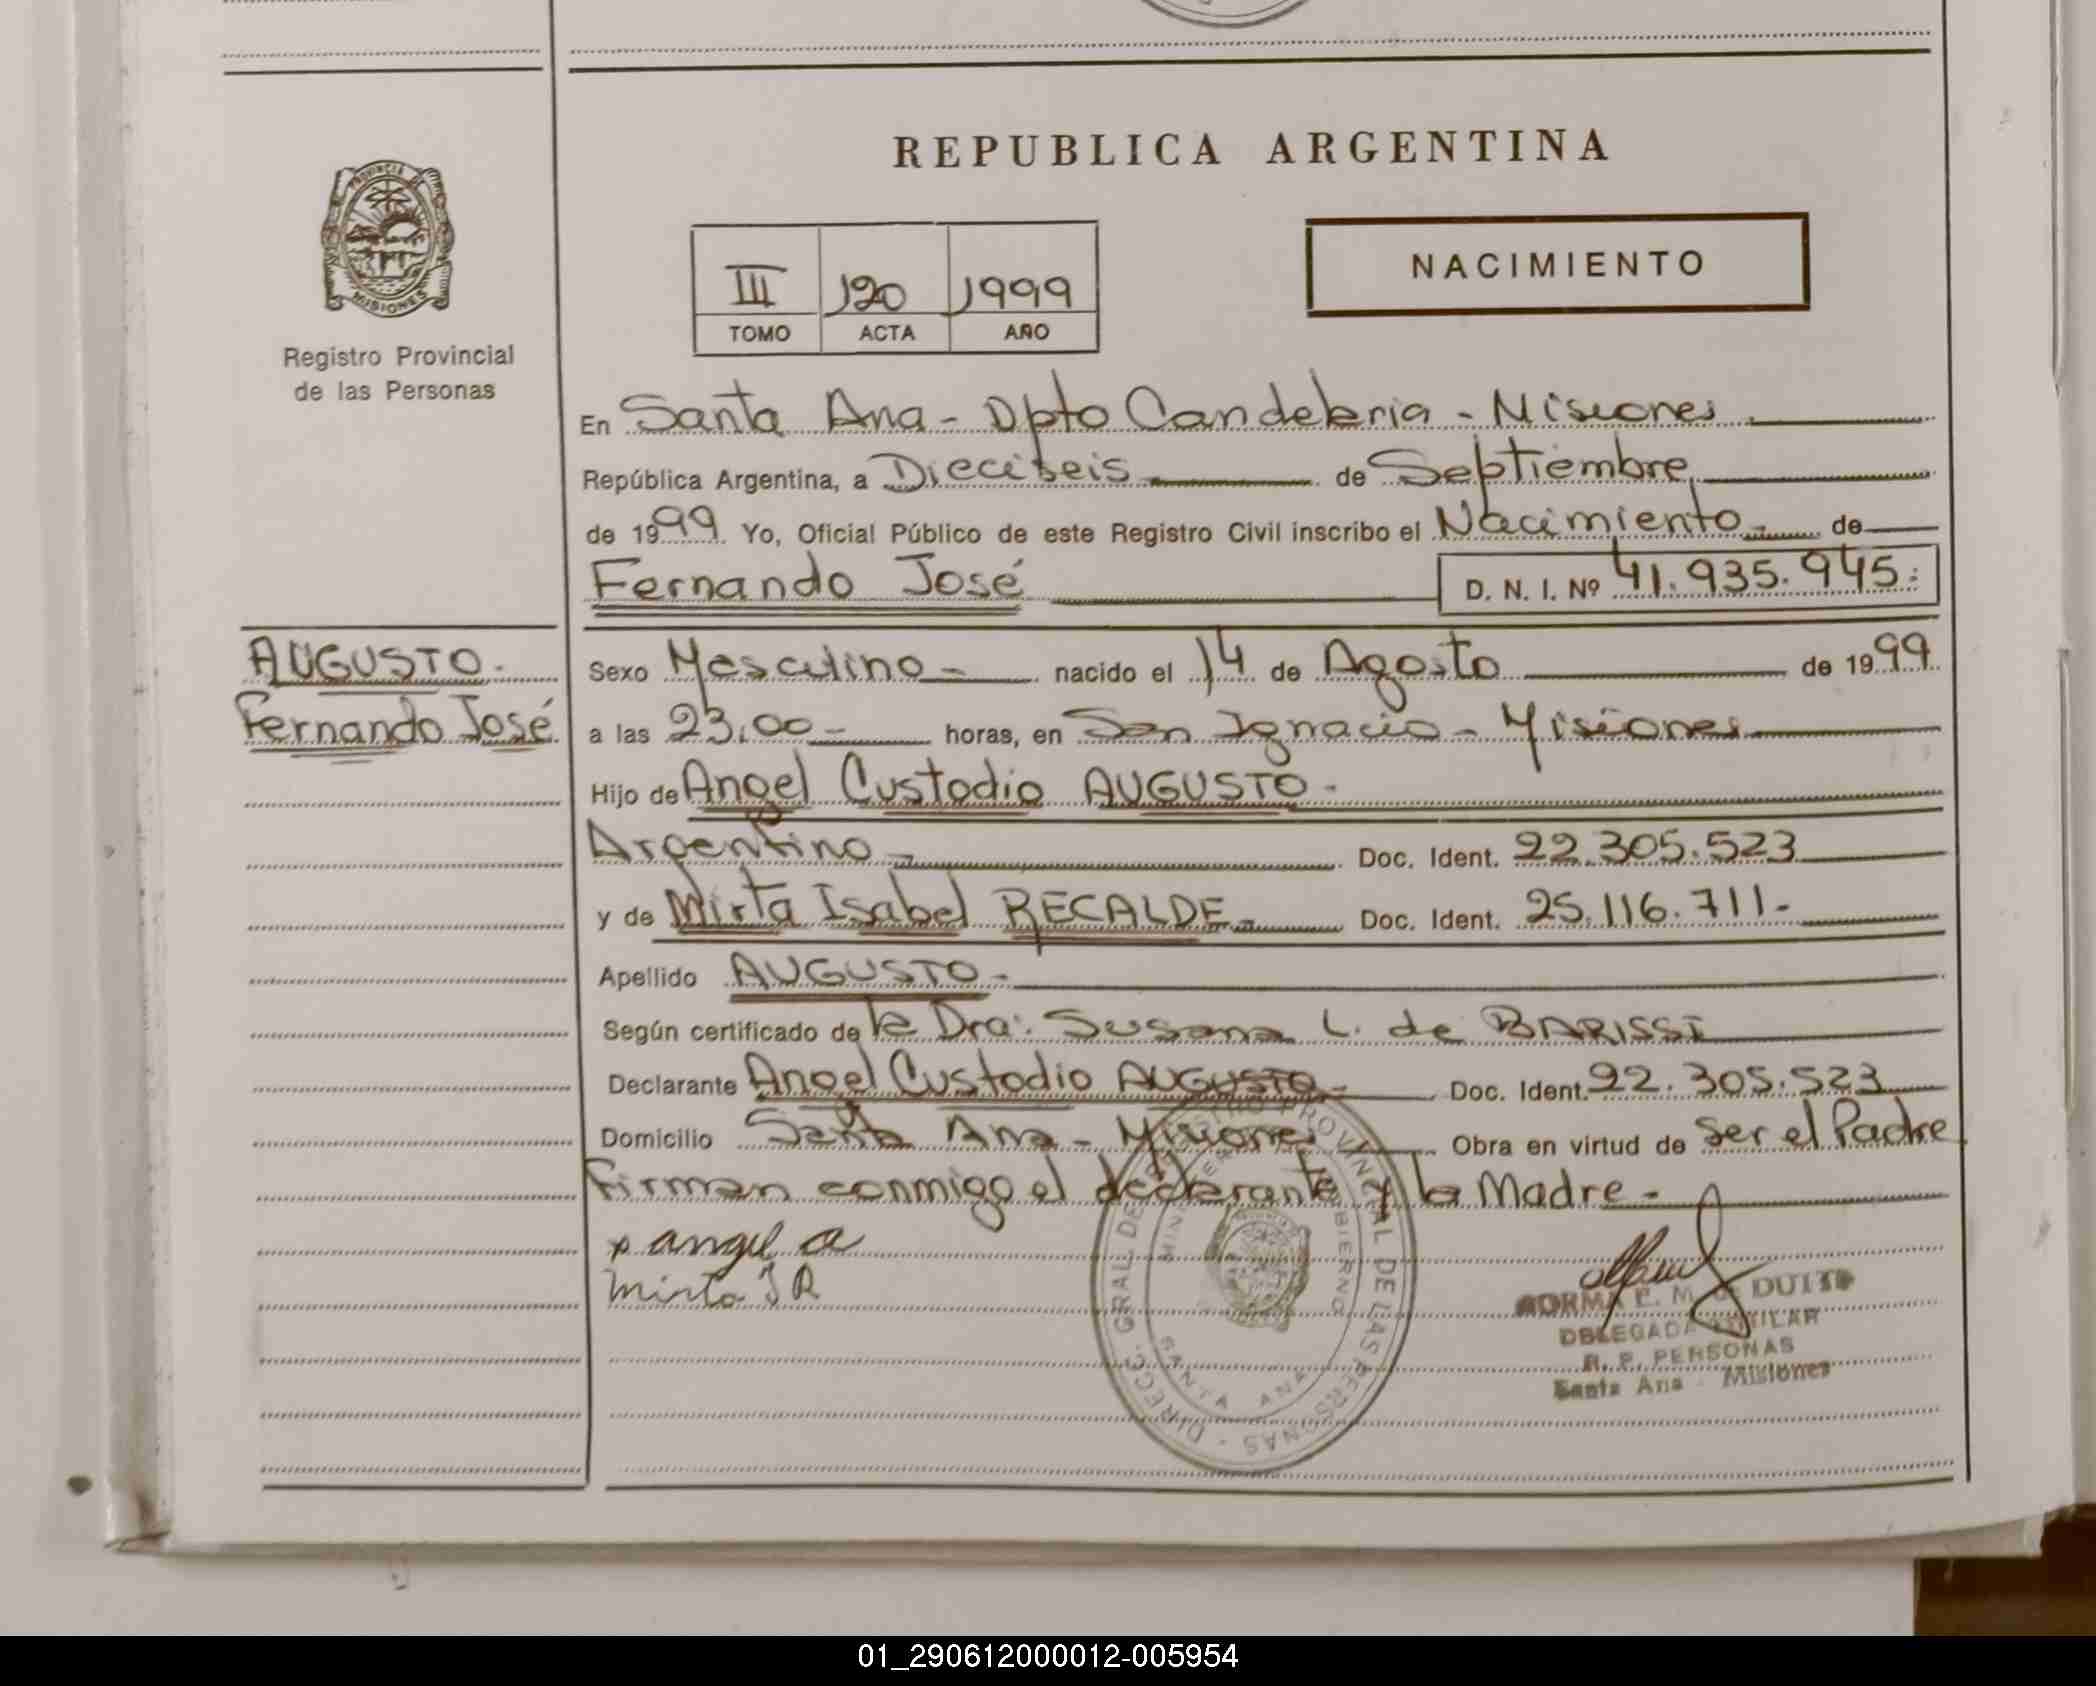 REPUBLICA ARGENTINA
PROVINCIA DE
MISIONES
Registro Provincial
de las Personas
III 120 1999
TOMO ACTA AÑO
NACIMIENTO
En Santa Ana - Dpto Candelaria - Misiones
República Argentina, a Dieciseis de Septiembre
de 1999 Yo, Oficial Público de este Registro Civil inscribo el Nacimiento - de
Fernando José D. N. I. Nº 41.935.945.
AUGUSTO.
Fernando José
Sexo Masculino - nacido el 14 de Agosto de 1999
a las 23,00 - horas, en San Ignacio - Misiones
Hijo de Angel Custodio AUGUSTO -
Argentino - Doc. Ident. 22.305.523
y de Mirta Isabel RECALDE - Doc. Ident. 25.116.711 -
Apellido AUGUSTO -
Según certificado de la Dra: Susana L. de BARISSI
Declarante Angel Custodio AUGUSTO - Doc. Ident. 22.305.523
Domicilio Santa Ana - Misiones Obra en virtud de Ser el Padre
Firman conmigo el declarante y la Madre -
x angel a
Mirta I R
DIRECC. GRAL. DE REGISTRO PROVINCIAL DE LAS PERSONAS -
SANTA ANA
NORMA E. M. de DUITO
DELEGADA TITULAR
R. P. PERSONAS
Santa Ana - Misiones
01_290612000012-005954